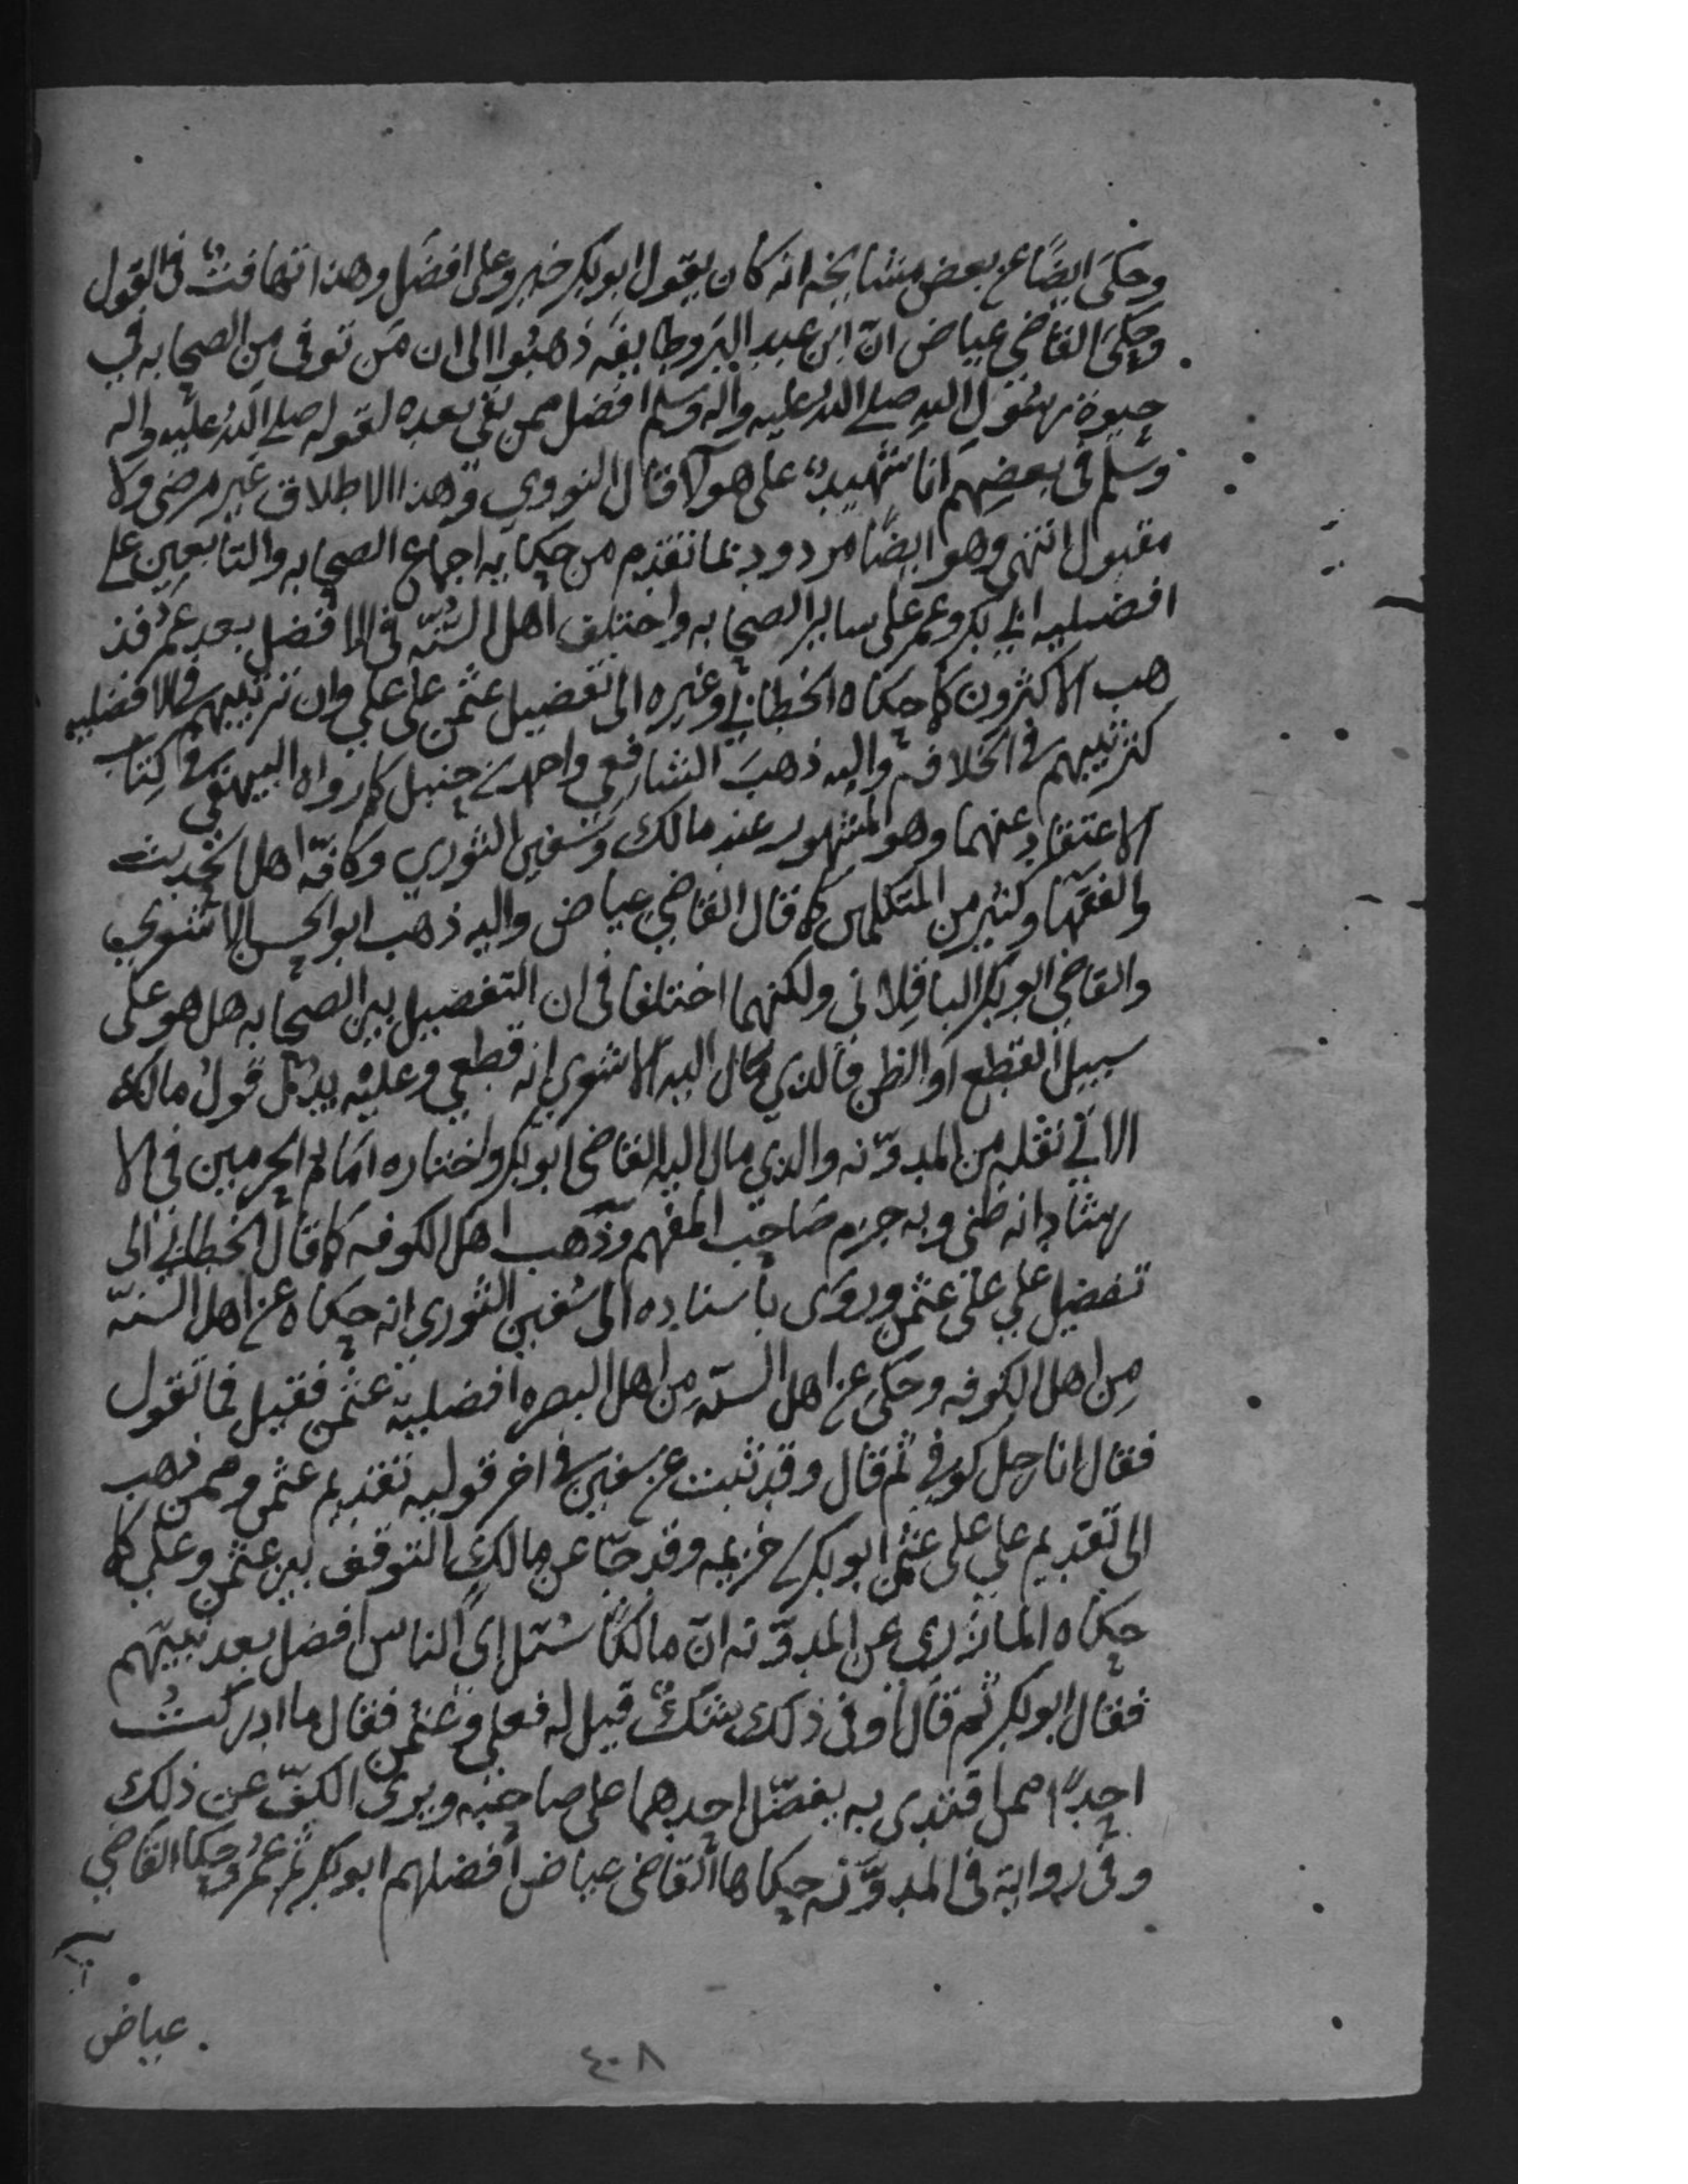 وحكى ايضًا عن بعض مشايخه انه كان يقول ابو بكر خير وعلى افضل وهذا تهافتٌ فى القول
وحكى القاضي عياض انّ ابن عبد البَر وطايفه ذهبُوا الى ان مَن توفى من الصحابه في
حيوة رسُول الله صلى الله عليه واله وسلم افضل ممن بقى بعده لقوله صلى الله عليه واله
وسلم فى بعضهم انا شهيدٌ على هولا قال النووي وهذا الاطلاق غير مرضى ولا
مقبول انتهى وهو ايضًا مردود بما تقدم من حكايه اجماع الصحابه والتابعين على
افضليه ابي بكر وعمر على ساير الصحابه واختلف اهل السُّنّه فى الافضل بعد عمر فذ
هب الاكثرون كما حكاه الخطابي وغيره الى تفضيل عثمن على علي وان ترتيبهم فى الافضليه
كترتيبهم فى الخلافه واليه ذهبَ الشافعي واحمد بن حنبل كما رواه البيهقي فى كتاب
الاعتقاد عنهما وهو المشهور عند مالك وسفين الثوري وكافّه اهل الحديث
والفقها وكثير من المتكلمين كما قال القاضي عياض واليه ذهب ابو الحسن الاشعري
والقاضي ابو بكر الباقلانى ولكنهما اختلفا فى ان التفضيل بين الصحابه هل هو على
سبيل القطع او الظن فالذي مال اليه الاشعري انه قطعي وعليه يدل قول مالك
الاتي نقله من المدوّنه والذي مال اليه القاضى ابو بكر واختاره امام الحرمين في الا
رشاد انه ظنى وبه جزم صَاحب المفهم وذهب اهل الكوفه كما قال الخطابي الى
تفضيل علي على عثمن وروى باسناده الى سُفين الثوري انه حكاه عن اهل السنّه
مِن اهل الكوفه وحكى عن اهل السنّه مِن اهل البصره افضلية عثمن فقيل فما تقول
فقال انا رجل كوفي ثم قال وقد ثبت عن سفين فى اخر قوليه تقديم عثمن وممن ذهب
الى تقديم علي على عثمن ابو بكر بن خزيمه وقد جا عن مالك التوقف بين عثمن وعلي كما
حكاه المازري عن المدوّنه انّ مالكًا سئل اىّ الناس افضل بعد نبيّهم
فقال ابو بكر ثم قال اَوفى ذلك شكٌّ قيل له فعلي وعثمن فقال ما ادركتُ
احدًا ممن اقتدى به يفضّل احدهما على صاحبه ويرى الكفّ عن ذلك
وفى رواية فى المدوّنه حكاها القاضى عياض افضلهم ابو بكر ثم عمر وحكا القاضي
عياض
٤٠٨